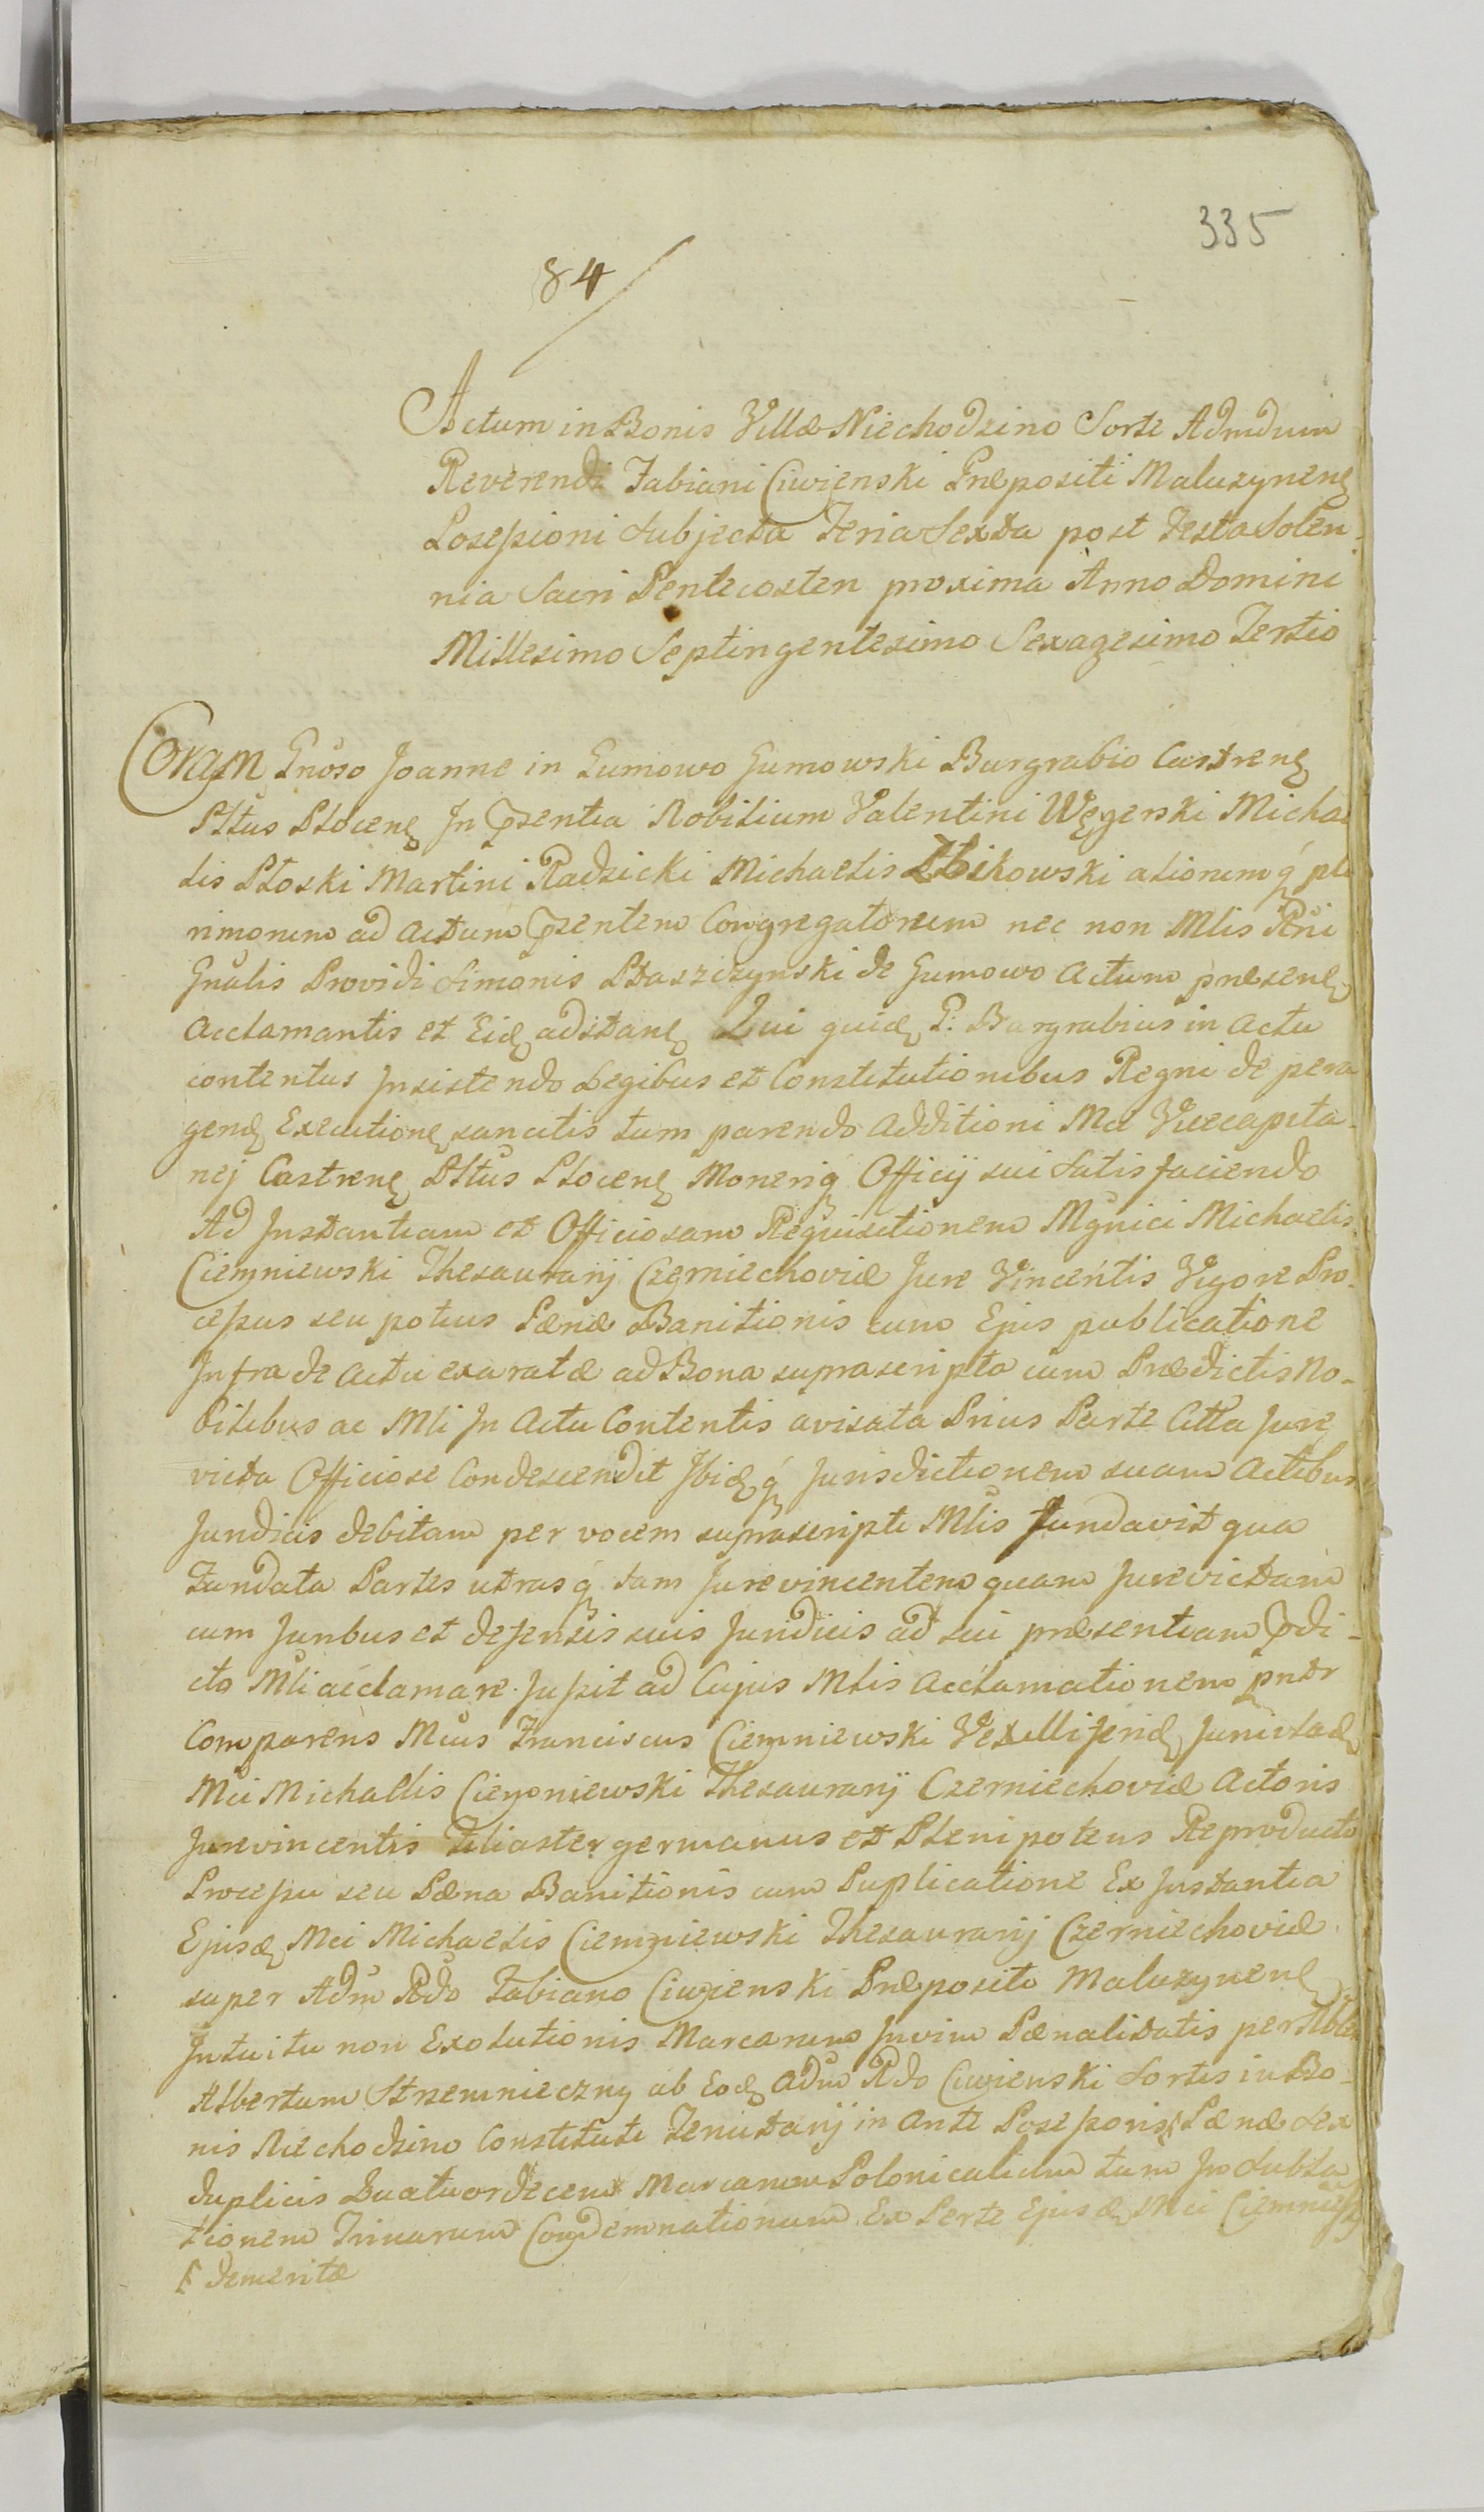 335
84
Actum in Bonis Villæ Niechodzino Sorte Admdum
Reverendi Fabiani Ciwienski Præpositi Maluzynenę
Possessioni Subjecta Feria Sexta post Festa Solen-
nia Sacri Pentecosten proxima Anno Domini
Millesimo Septingentesimo Sexagesimo Tertio
Coram Gnoso Joanne in Gumowo Gumowski Burgrabio Castrenę
Pltus Plocenę In Pzentia Nobilium Valentini Węgerski Michae
lis Ploski Martini Radzicki Michaelis Żbikowski aliorumq plu
rimorum ad Actum Pzentem Congregatorum nec non Mlis Rni
Gnalis Providi Simonis Staszczynski de Gumowo Actum præsenę
acclamantis et Eidę adstanę Qui quidę G: Burgrabius in Actu
contentus Insistendo Legibus et Constitutionibus Regni de pera
gendę Executionę sancitis tum parendo additioni Mci Vicecapita-
nej Castrenę Pltus Plocenę Munerisq Officij sui Satisfaciendo
Ad Instantiam et Officiosam Requisitionem Mgnici Michaelis
Ciemniewski Thesaurarij Czerniechoviæ Jure Vincentis Vigore Pro-
cessus seu potius Pænæ Banitionis cum Ejus publicatione
Infra de Actu exaratæ ad Bona suprascripta cum Prædictis No-
bilibus ac Mli In Actu Contentis avisata Prius Parte Citta Jure
victa Officiose Condescendit Ibidęq Jurisdictionem suam Actibus
Juridicis debitam per vocem suprascripti Mlis Fundavit qua
Fundata Partes utrasq tam Jurevincentem quam Jurevictam
cum Juribus et defensis suis Juridicis ad sui præsentiam Pdi-
cto Mli acclamare Jussit ad Cujus Mlis Acclamationem pntr
Comparens Mcus Franciscus Ciemniewski Vexilliferidę Junivladę
Mci Michaelis Ciemniewski Thesaurarij Czerniechoviæ Actoris
Jurevincentis Filiaster germanus et Plenipotens Reproducto
Processu seu Pæna Banitionis cum Puplicatione Ex Instantia
Ejusdę Mci Michaelis Ciemniewski Thesaurarij Czerniechoviæ
super Adm Rdo Fabiano Ciwienski Præposito Maluzynenę
Intuitu non Exolutionis Marcarum Invim Pænalitatis per Nblem
Albertum Strzemieczny ab Eodę Adm Rdo Ciwienski Sortis in Bo-
nis Niechodzino Constituti Tenutarij in Ante Possessoris Pænæ Sex
duplicis Quatuordecem Marcarum Polonicalium tum In Subla
tionem Trinarum Condemnationum Ex Parte Ejusdę Mci Ciemniews
demeritæ